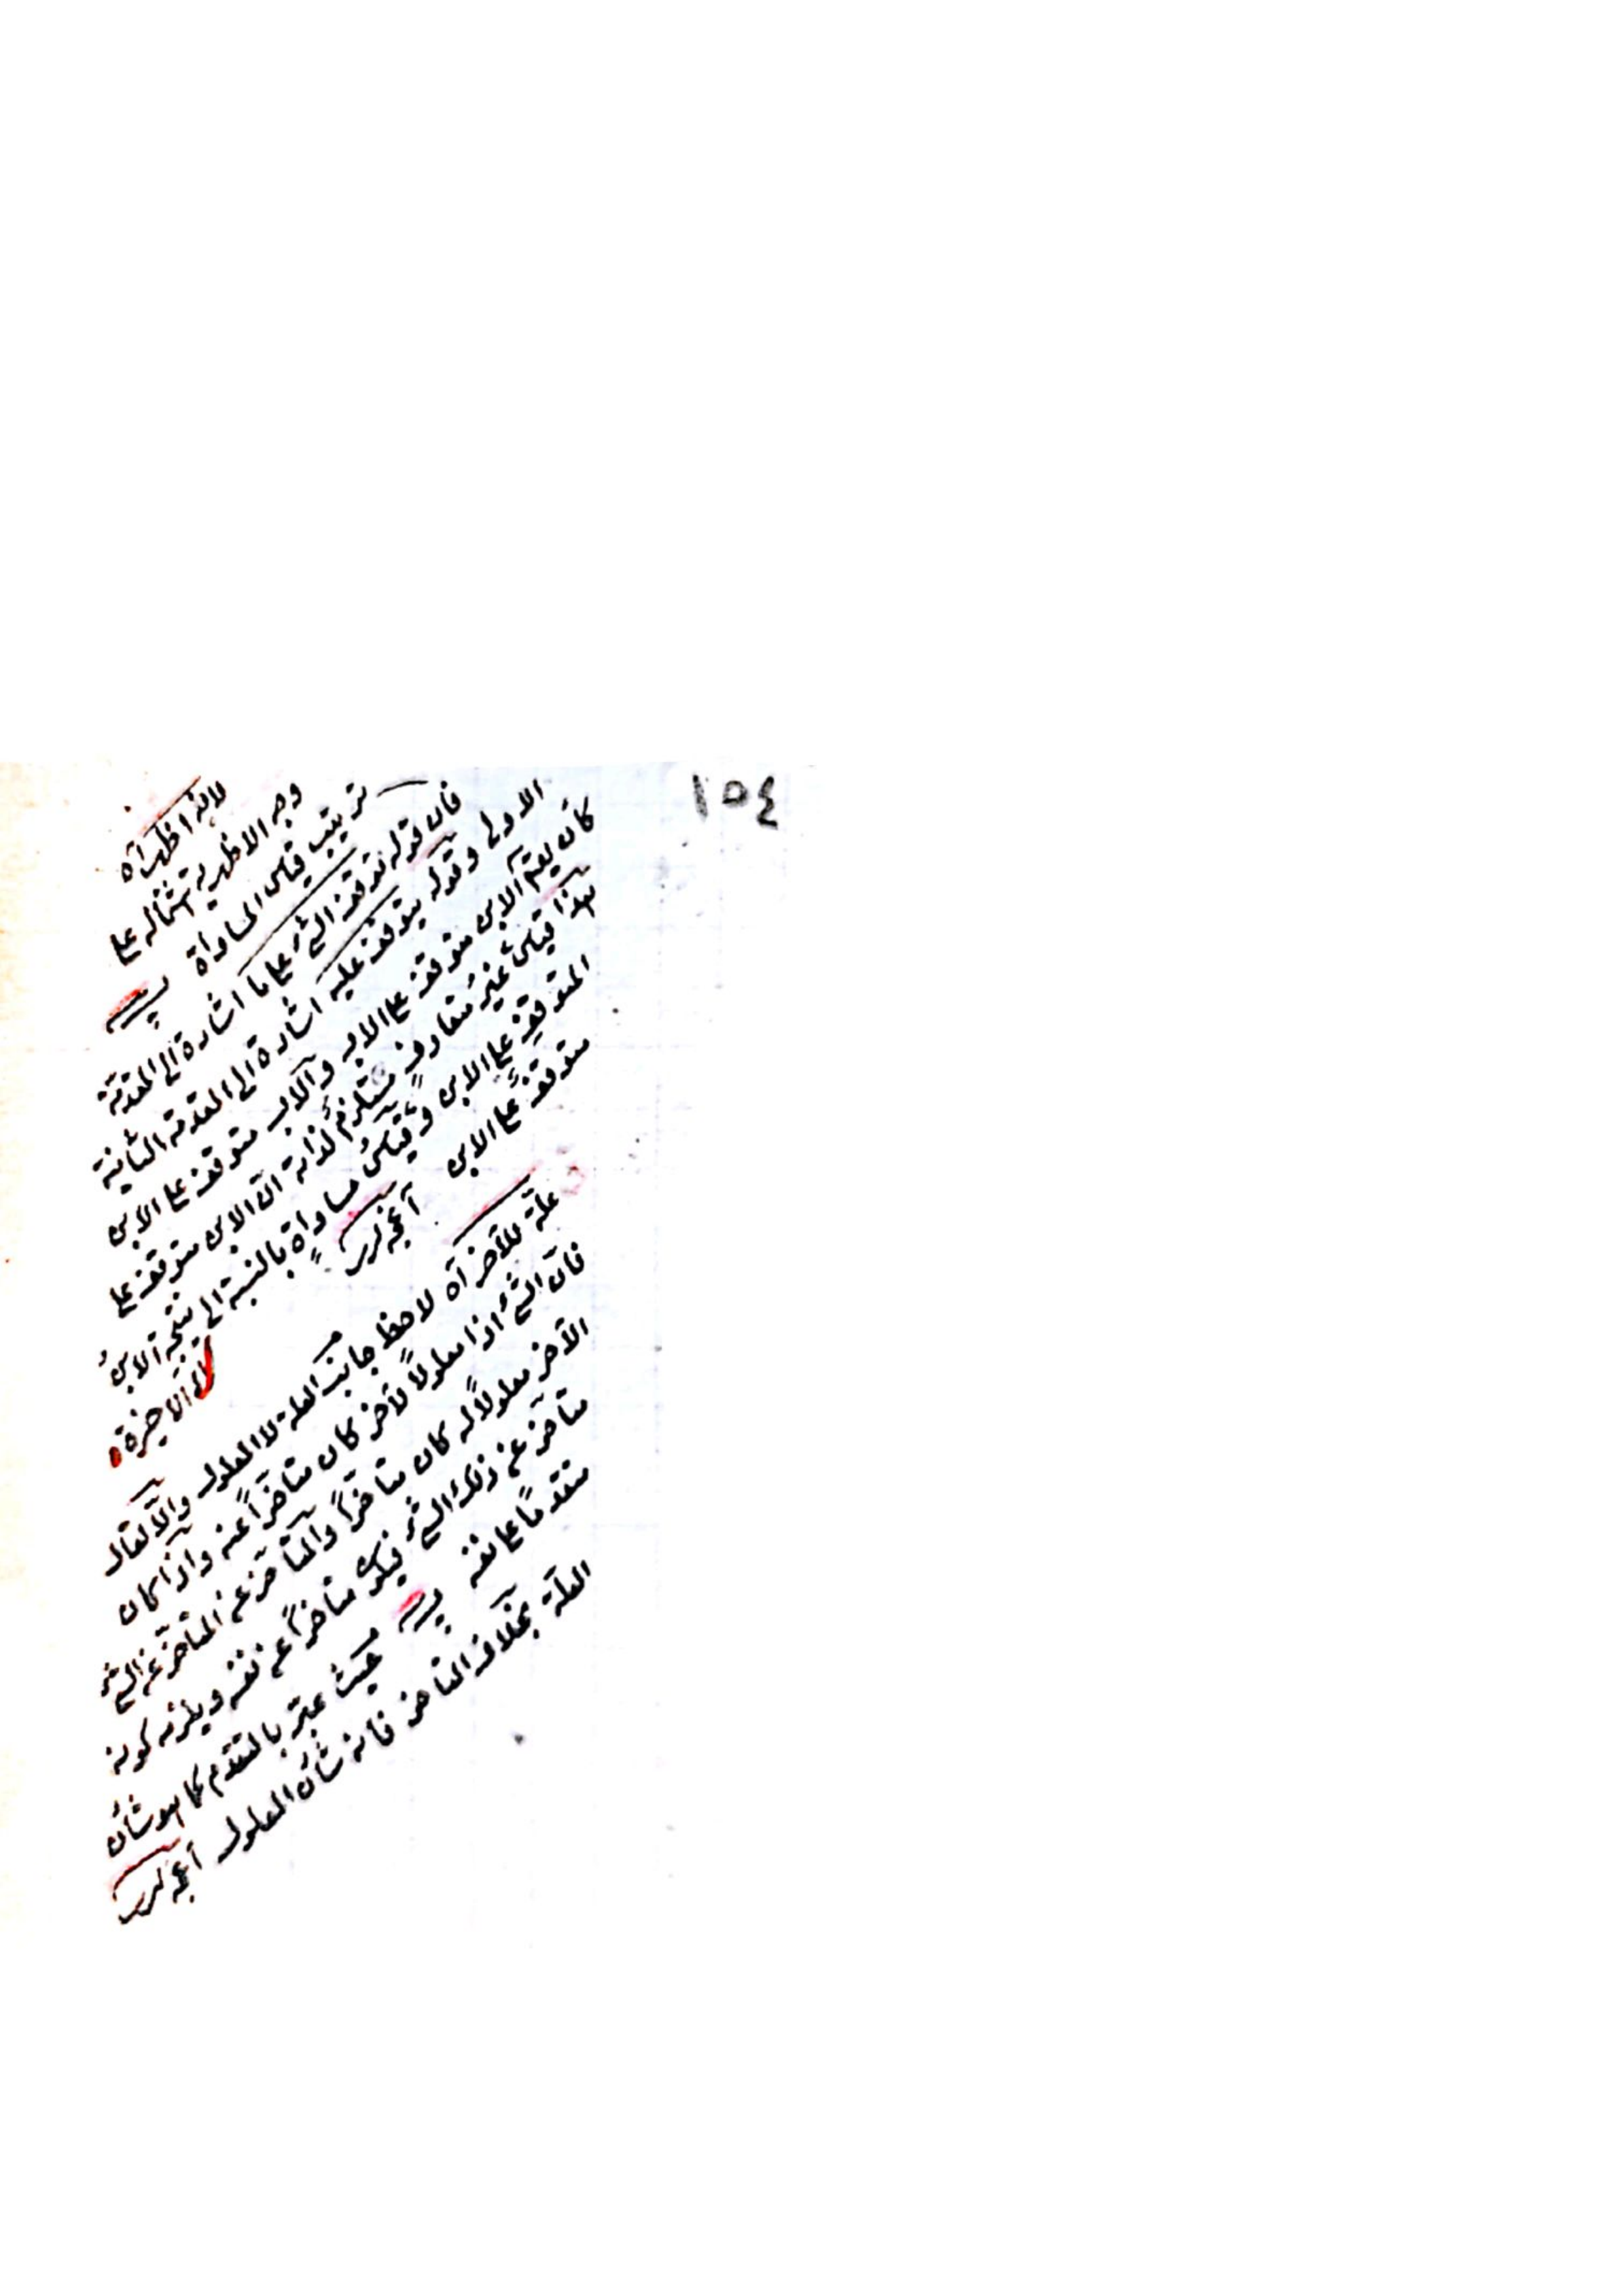 ١٥٤
لانه اظهر آه
وجه الاظهرية اشتماله على
ترتيب قياس المساواة
فان قوله توقف الشئ على ما اشارة الى المقدمة
الاولى وقوله يتوقف عليه اشارة الى المقدمة الثانية
كان يقم الابن متوقف على الاب والاب متوقف على الابن
فهذا قياس غير متعارف مستلزم لذاته ان الابن متوقف على
المتوقف على الابن وقياس مساواة بالنسبة الى نتيجة الابن
متوقف على الابن
الاخيرة
علة للآخر آه لاحظ جانب العلة لا المعلول والا لقال
فان الشئ اذا معلولا لآخر كان متأخرا عنه واذا كان
الآخر معلولا له كان متأخرا والمتأخر عن المتأخر عن الشئ
متأخر عن ذلك الشئ فيكون متأخرا عن نفسه ويلزمه كونه
متقدما على نفسه حيث عبر بالتقدم كما هو شأن
العلة بخلاف التأخر فانه شأن المعلول